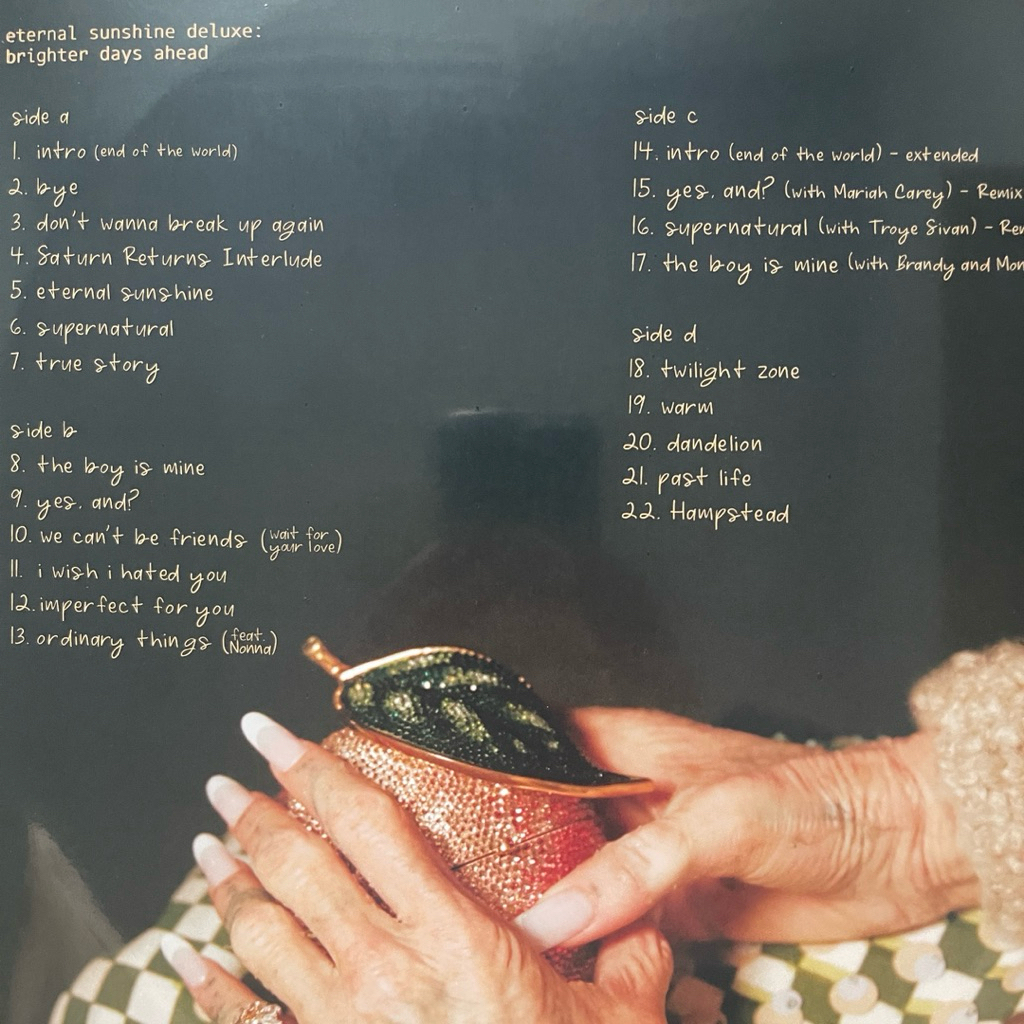 eternal sunshine deluxe:
brighter days ahead
side a
1. intro (end of the world)
2. bye
3. don't wanna break up again
4. Saturn Returns Interlude
5. eternal sunshine
6. supernatural
7. true story
side b
8. the boy is mine
9. yes, and?
10. we can't be friends (wait for
your love)
11. i wish i hated you
12. imperfect for you
13. ordinary things (feat.
Nonna)
side c
14. intro (end of the world) - extended
15. yes, and? (with Mariah Carey) - Remix
16. supernatural (with Troye Sivan) -
17. the boy is mine (with Brandy and
side d
18. twilight zone
19. warm
20. dandelion
21. past life
22. Hampstead